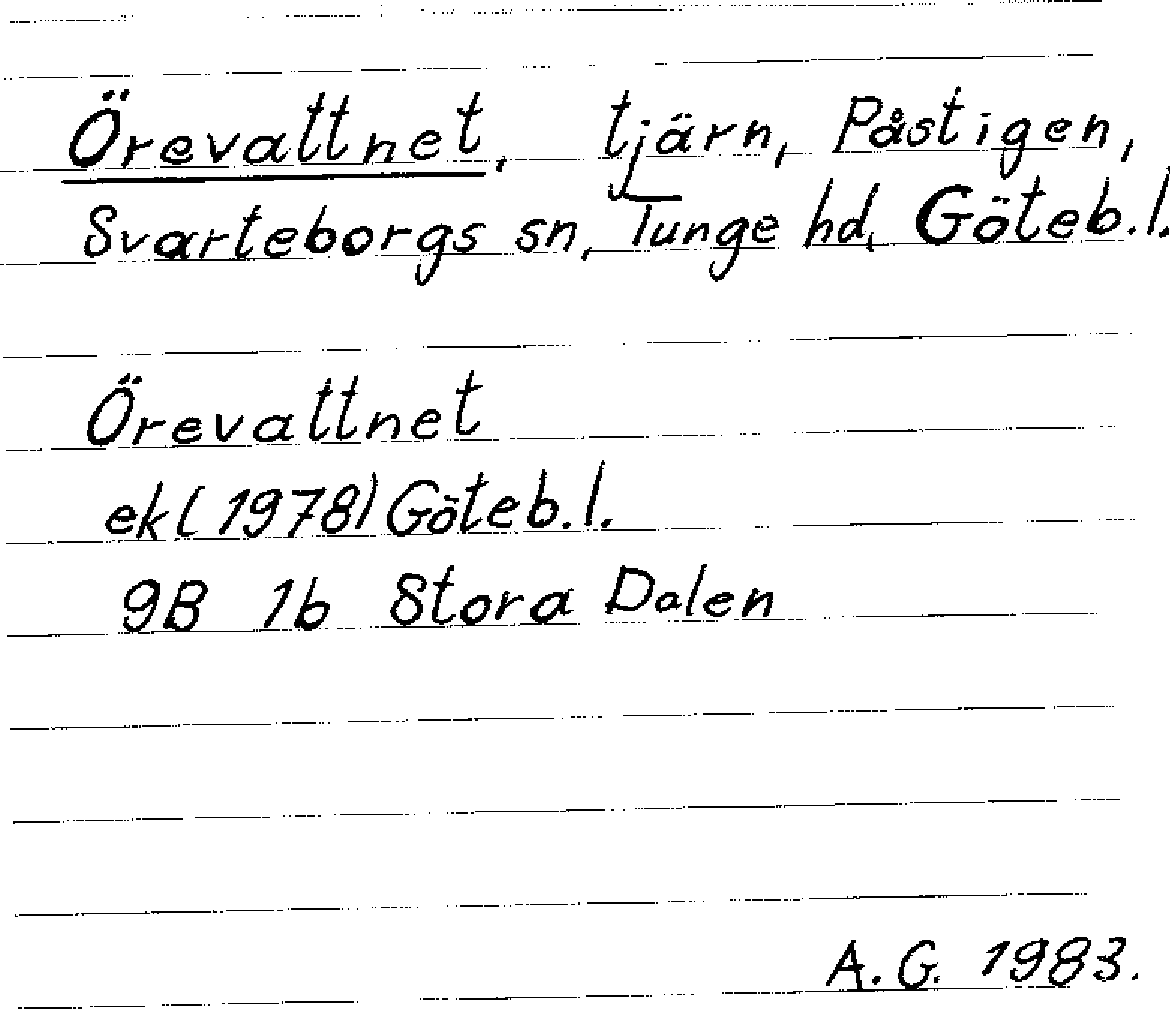 Örevattnet, tjärn, Påstigen,
Svarteborgs sn, Tunge hd, Göteb.l.
Örevattnet
ek (1978) Göteb.l.
9B 1b Stora Dalen
A.G. 1983.